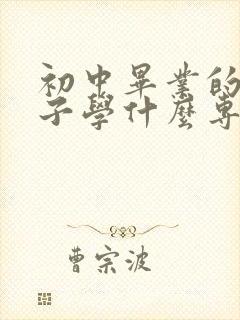 初中畢業的
子學什麼專
曹宗波